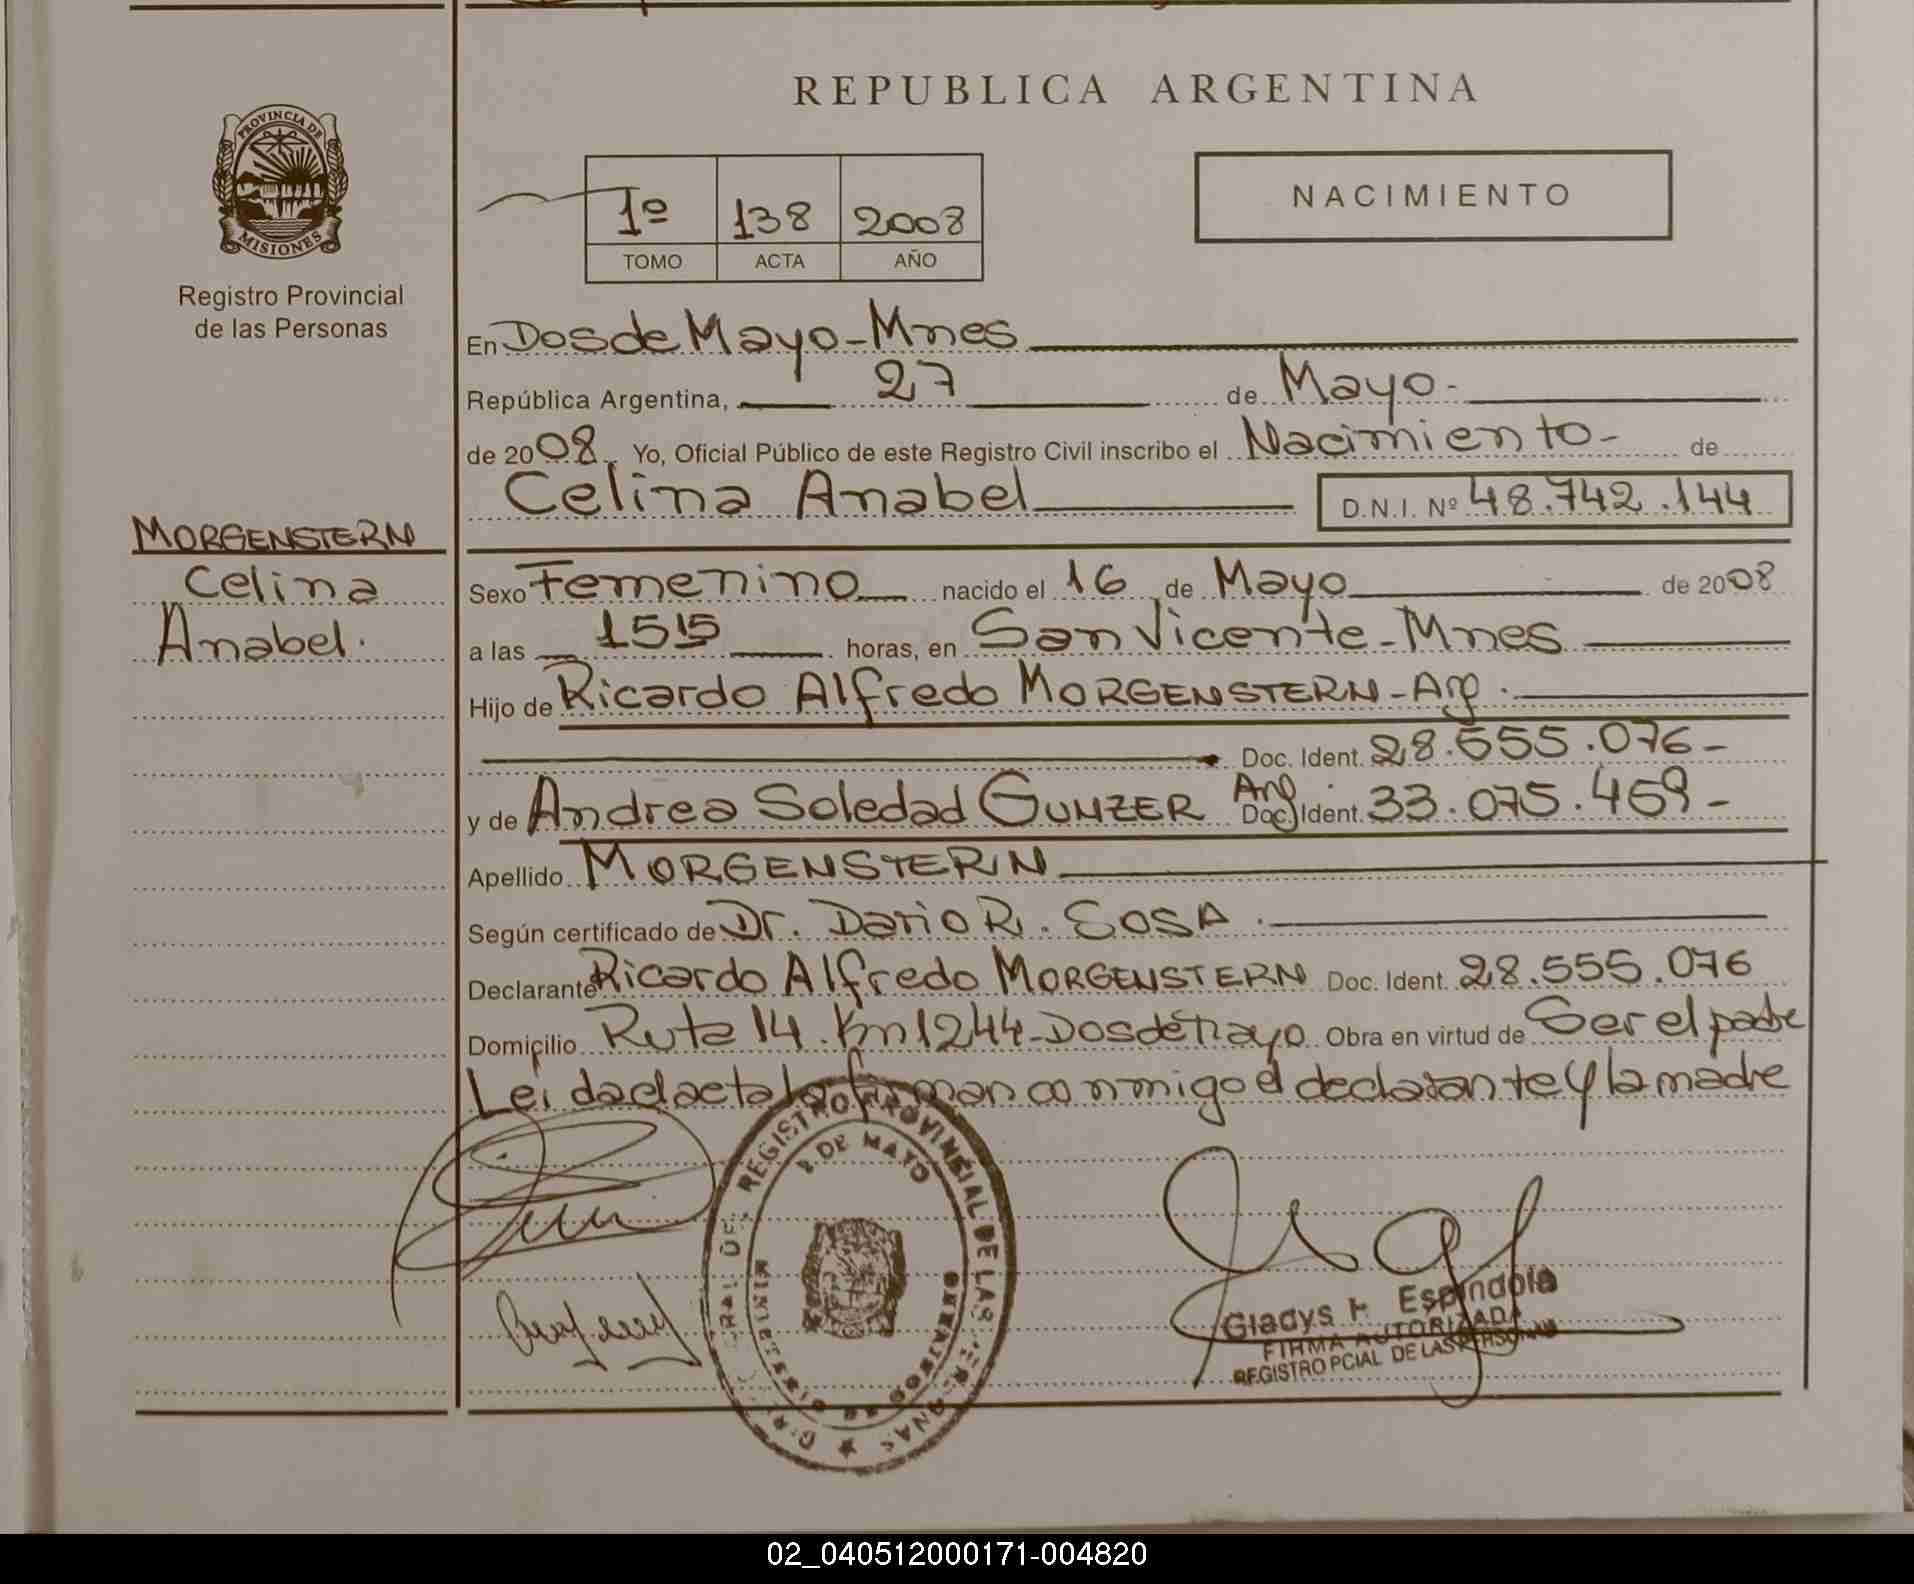 REPUBLICA ARGENTINA
PROVINCIA DE
MISIONES
Registro Provincial
de las Personas
1º 138 2008
TOMO ACTA AÑO
NACIMIENTO
En Dos de Mayo - Mnes
República Argentina, 27 de Mayo -
de 2008 Yo, Oficial Público de este Registro Civil inscribo el Nacimiento - de
Celina Anabel D.N.I. Nº 48.742.144
MORGENSTERN
Celina
Anabel.
Sexo Femenino nacido el 16 de Mayo de 2008
a las 1515 horas, en San Vicente - Mnes
Hijo de Ricardo Alfredo MORGENSTERN - Arg.
Doc. Ident. 28.555.076 -
y de Andrea Soledad GUNZER Arg Doc. Ident. 33.075.469 -
Apellido MORGENSTERN
Según certificado de Dr. Dario R. SOSA.
Declarante Ricardo Alfredo MORGENSTERN Doc. Ident. 28.555.076
Domicilio Ruta 14. Km 1244 - Dos de Mayo Obra en virtud de Ser el padre
Leida el acta la firman conmigo el declarante y la madre
REGISTRO PROVINCIAL DE LAS PERSONAS
2 DE MAYO
Gladys Espindola
FIRMA AUTORIZADA
REGISTRO PCIAL DE LAS PERSONAS
02_040512000171-004820